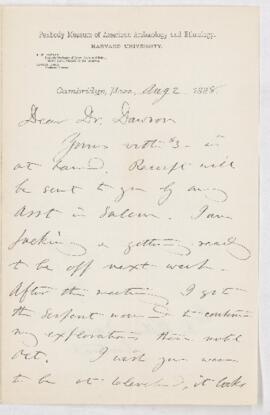 Peabody Museum of American Archæology and Ethnology,
HARVARD UNIVERSITY.
Cambridge, Mass., Aug 2 1888.
Dear Dr. Dawson
Yours with $3- is
at hand. Receipt will
be sent to you by my
Asst in Salem. I am
packing & getting ready
to be off next week.
After the meeting I go to
the serpent mound to continue
my explorations there until
Oct. I wish you were
to be at Cleveland, it looks